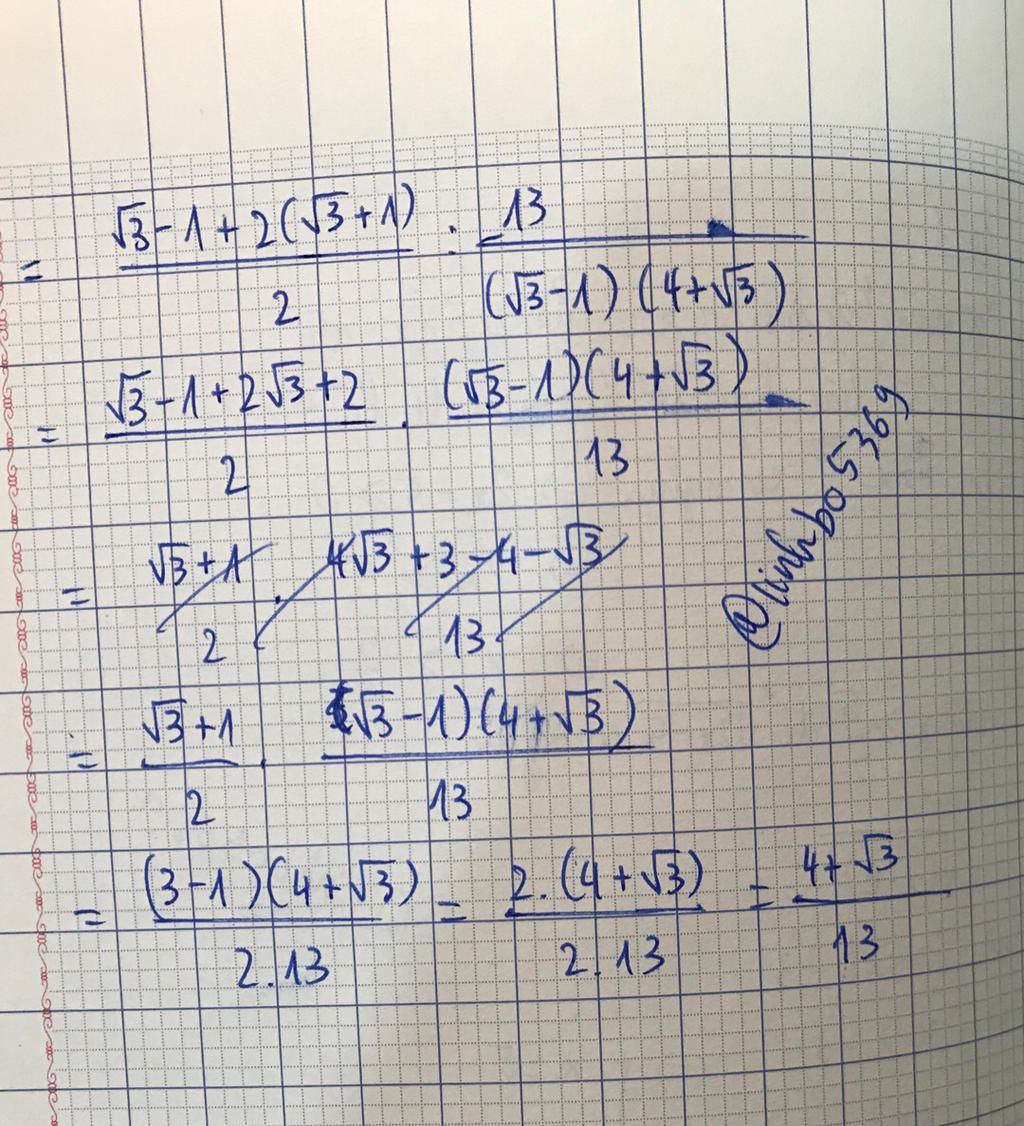 = (√3 - 1 + 2(√3 + 1))/2 : 13/((√3 - 1)(4 + √3))
= (√3 - 1 + 2√3 + 2)/2 . ((√3 - 1)(4 + √3))/13
= (√3 + 1)/2 . (4√3 + 3 - 4 - √3)/13
= (√3 + 1)/2 . ((√3 - 1)(4 + √3))/13
= ((3 - 1)(4 + √3))/(2.13) = (2.(4 + √3))/(2.13) = (4 + √3)/13
@linhbo5369